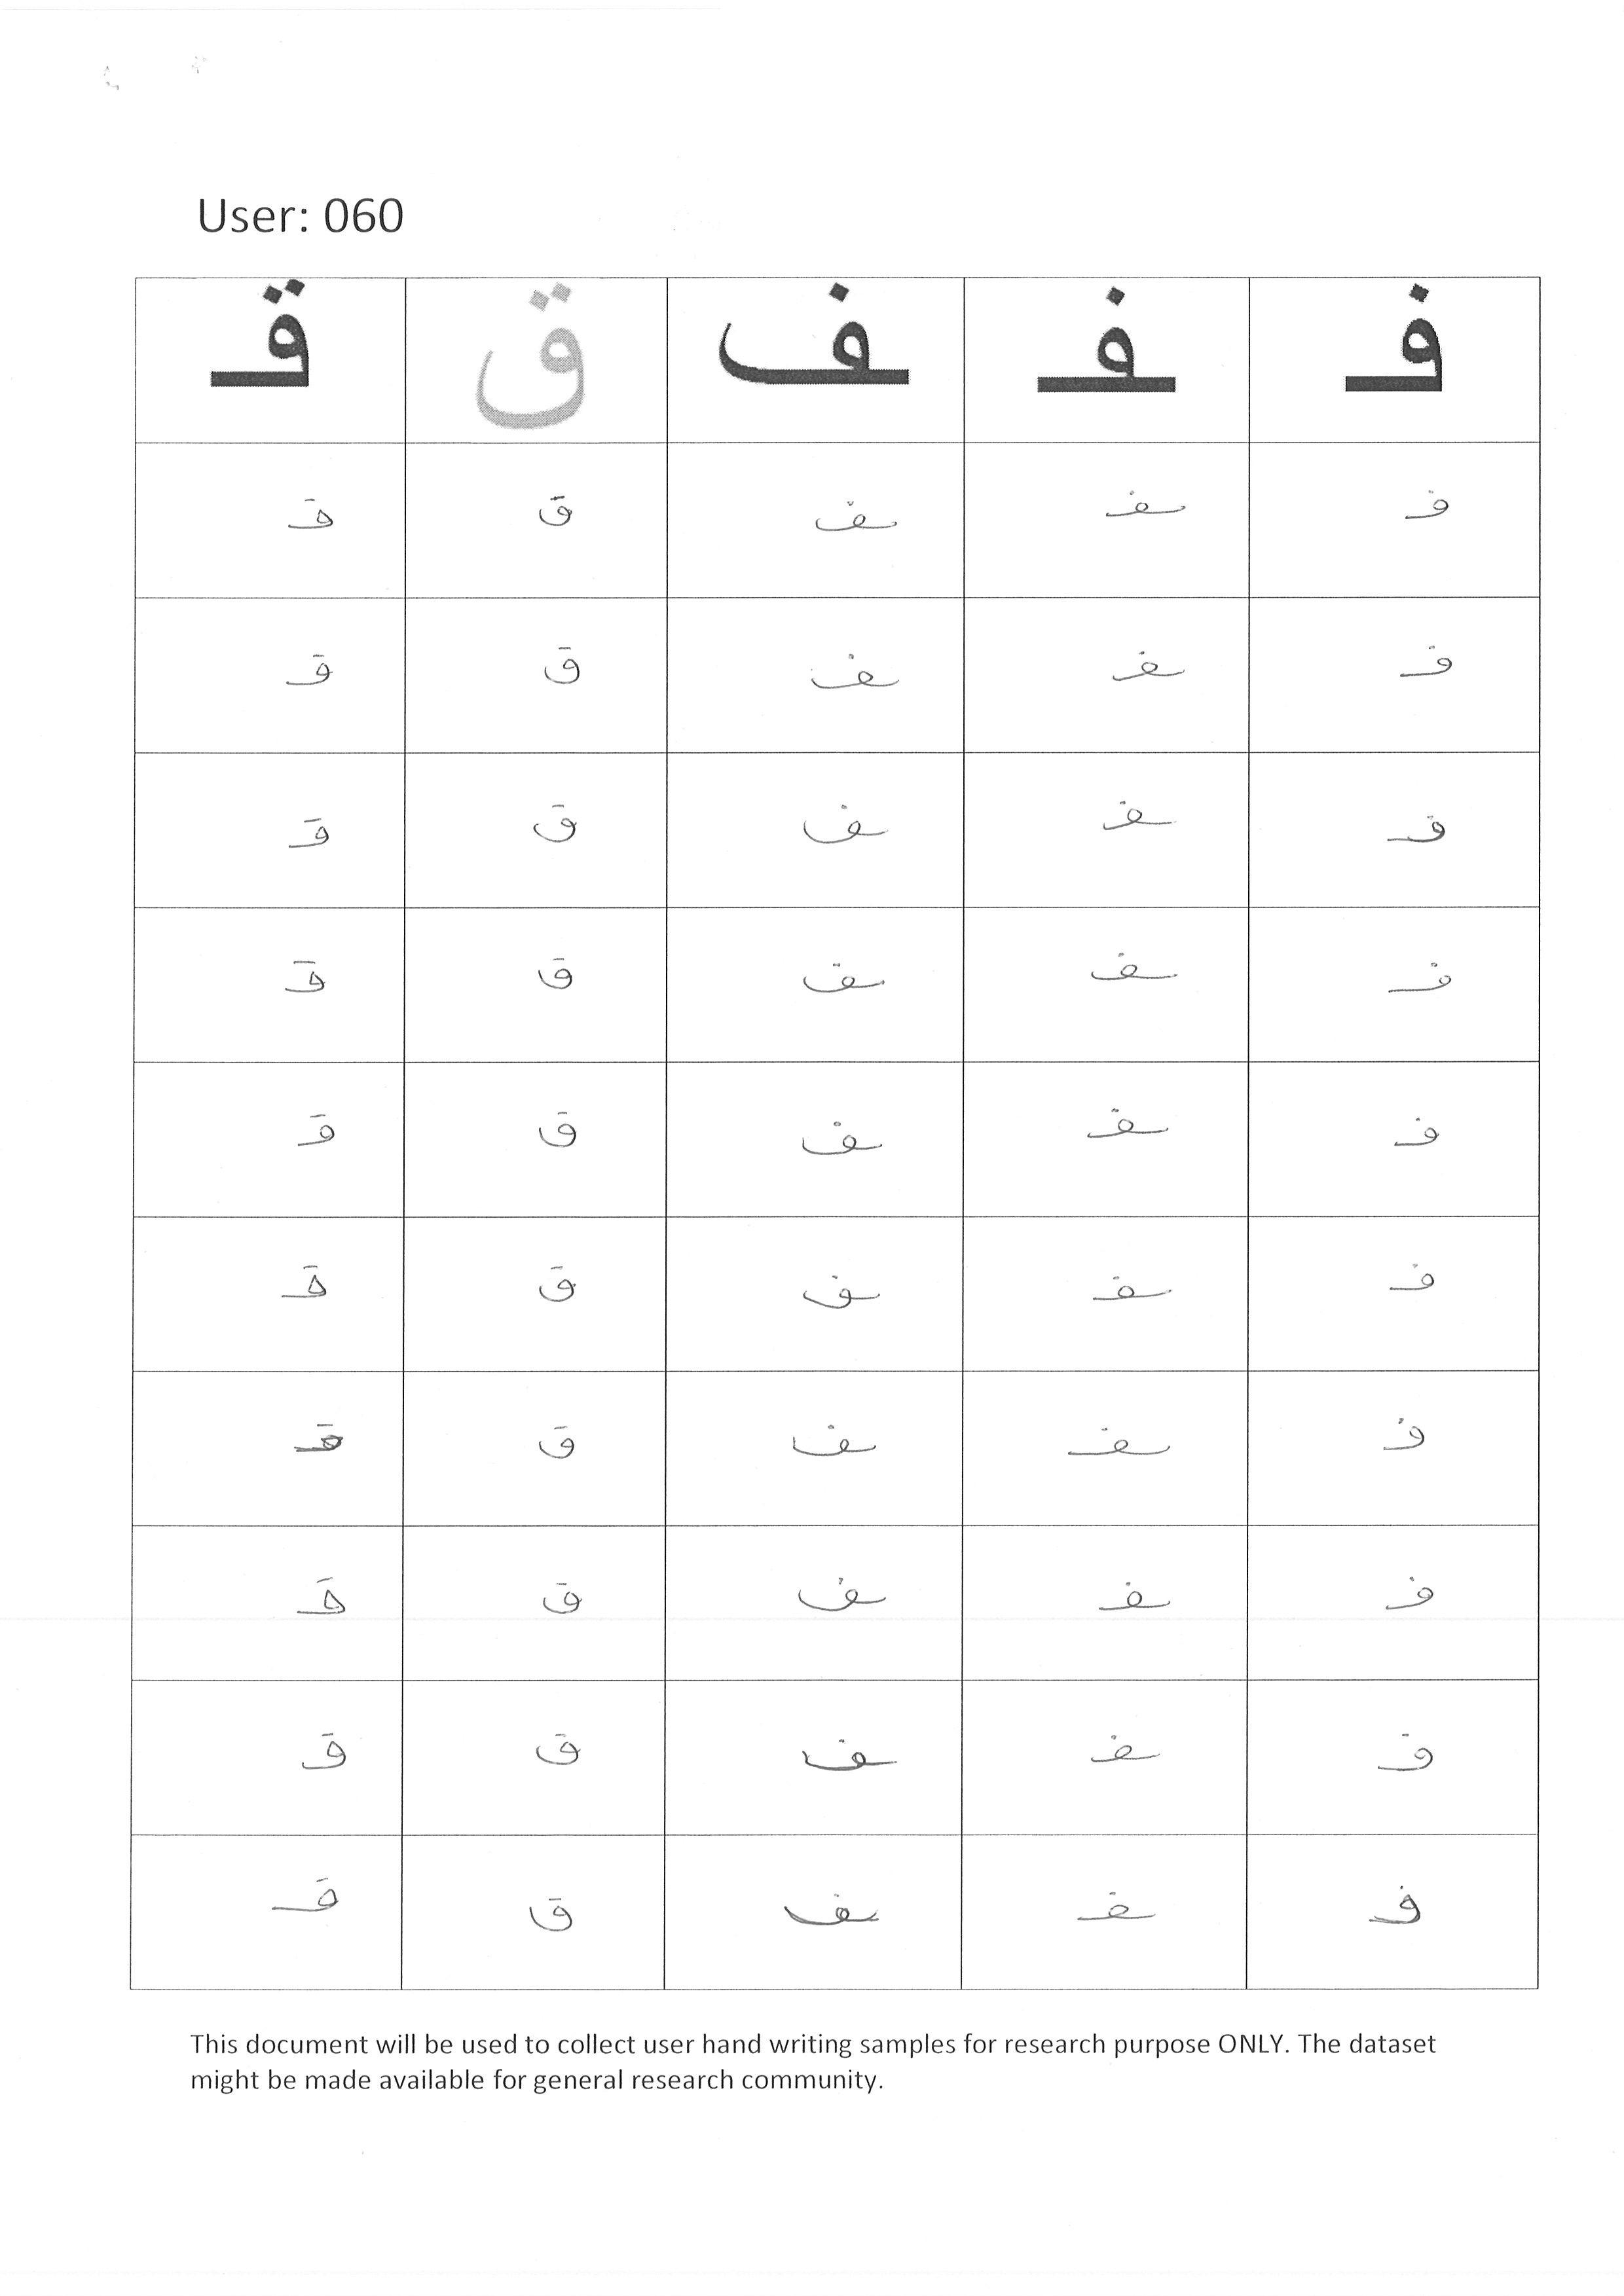 User: 060
فـ ـفـ ـف ق قـ
فـ ـفـ ـف ق قـ
فـ ـفـ ـف ق قـ
فـ ـفـ ـف ق قـ
فـ ـفـ ـف ق قـ
فـ ـفـ ـف ق قـ
فـ ـفـ ـف ق قـ
فـ ـفـ ـف ق قـ
فـ ـفـ ـف ق قـ
فـ ـفـ ـف ق قـ
فـ ـفـ ـف ق قـ
This document will be used to collect user hand writing samples for research purpose ONLY. The dataset
might be made available for general research community.